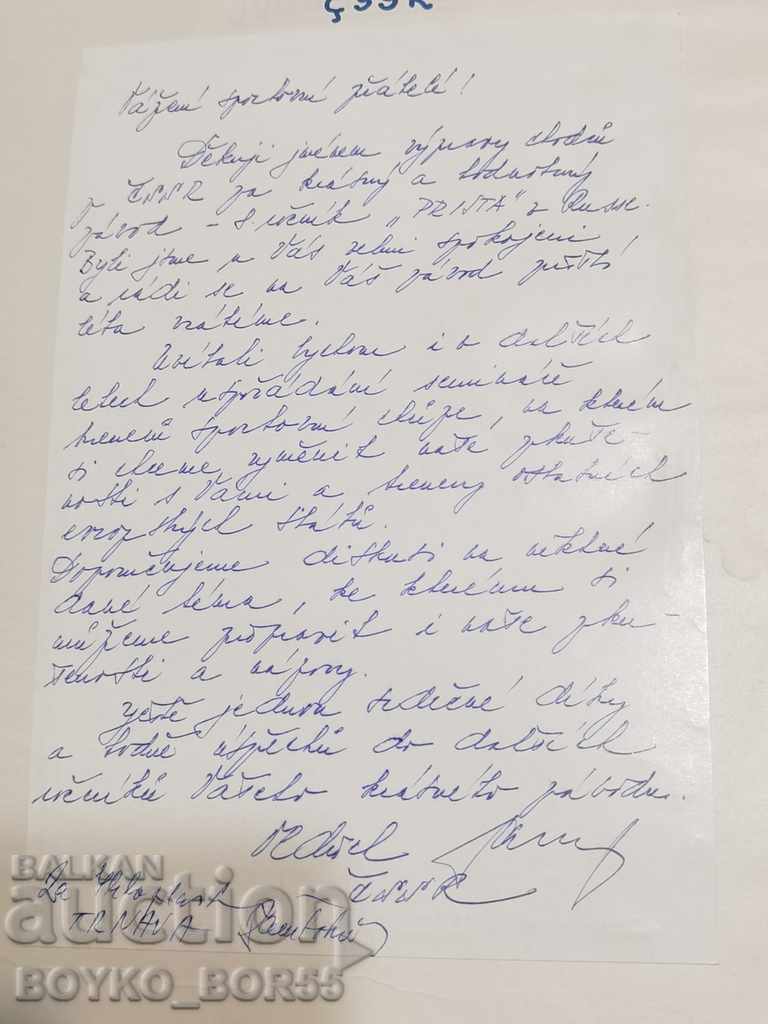 ČSSR
Vážení sportovní přátelé!
Děkuji jménem výpravy chodců
ČSSR za krásný a hodnotný
závod - 8. ročník „PRISTA" z Russe.
Byli jsme u Vás velmi spokojeni
a rádi se na Váš závod příští
léta vrátíme.
Uvítali bychom i v dalších
letech uspořádání semináře
trenerů sportovní chůze, na kterém
si chceme vyměnit naše zkuše-
nosti s Vámi a trenery ostatních
evropských států.
Doporučujeme diskusi na některé
dané téma, ke kterému si
můžeme připravit i naše zku-
šenosti a názory.
Ještě jednou srdečné díky
a hodně úspěchů do dalších
ročníků Vašeho krásného závodu.
ČSSR
Za
TRNAVA
BALKAN
auction
BOYKO_BOR55